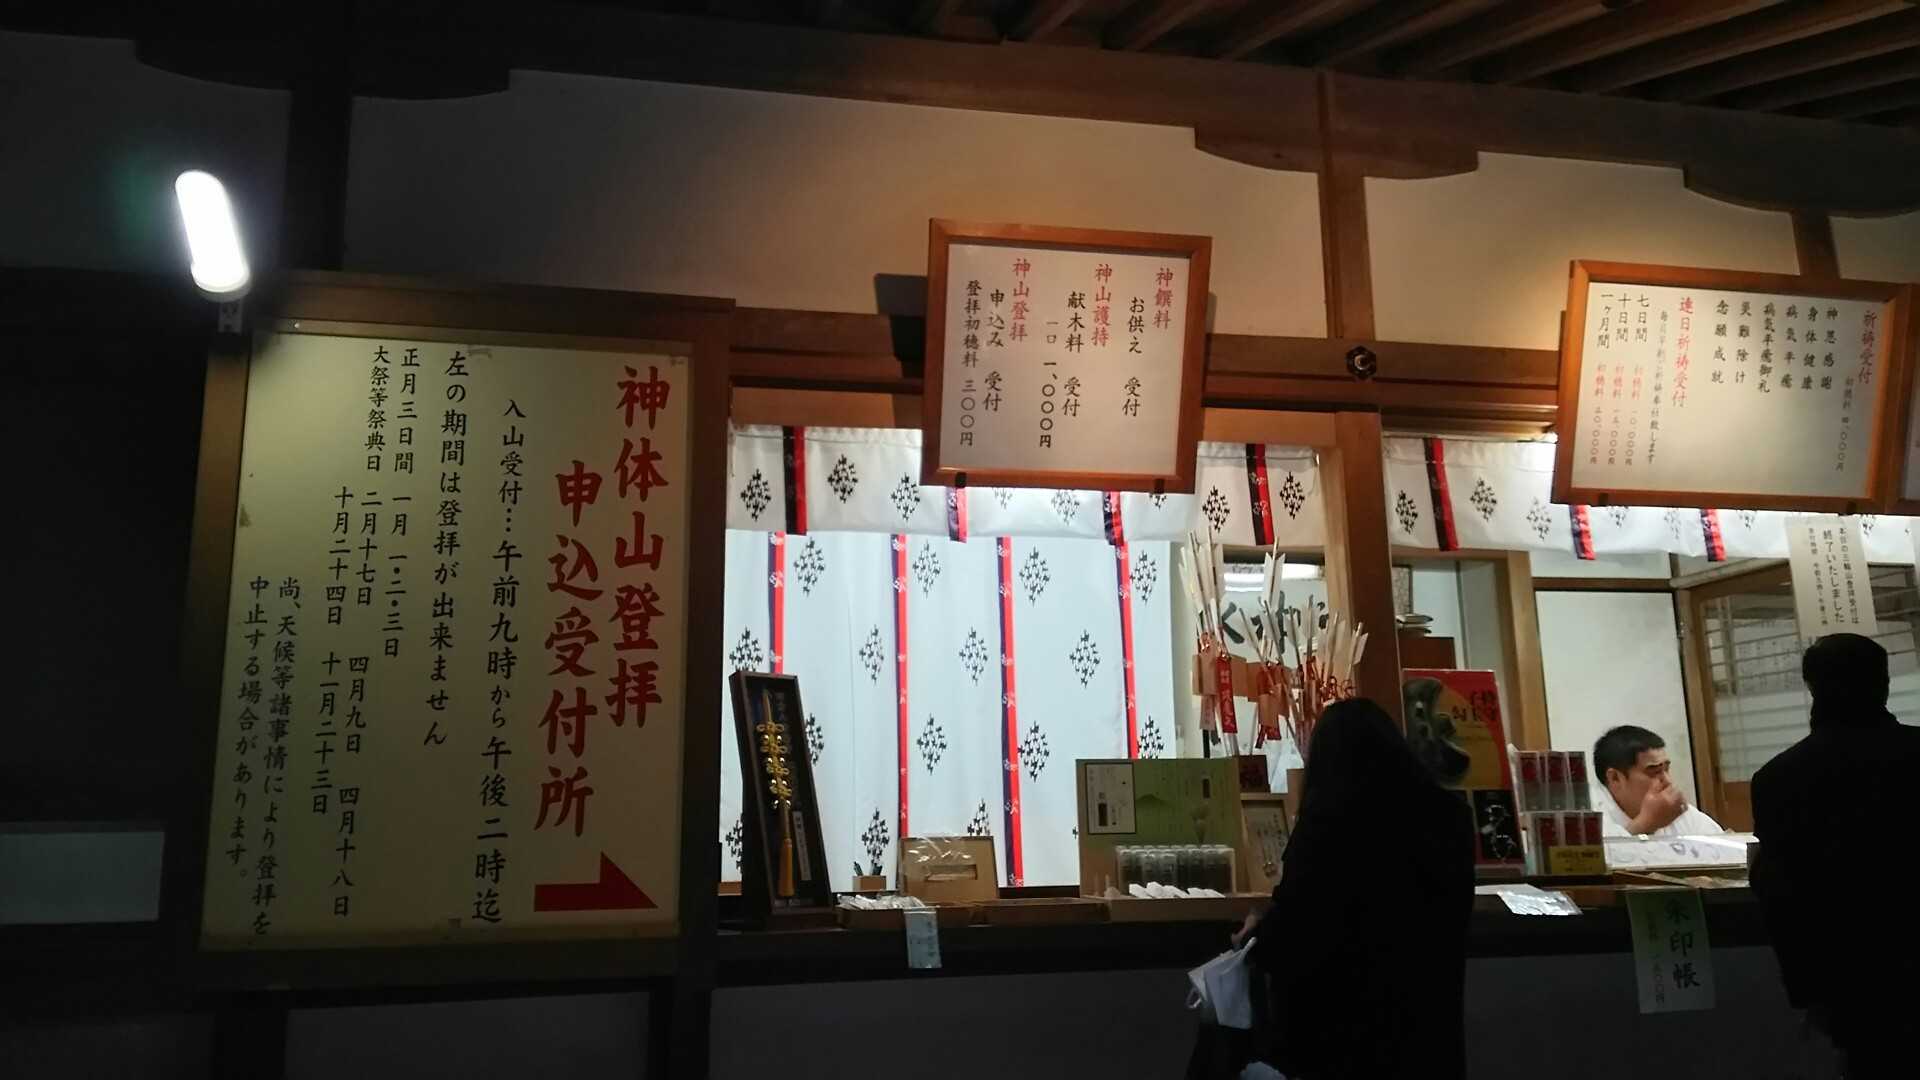 神体山登拝
申込受付所
入山受付…午前九時から午後二時迄
左の期間は登拝が出来ません
正月三日間 一月 一・二・三日
大祭等祭典日 二月十七日 四月九日 四月十八日
十月二十四日 十一月二十三日
尚、天候等諸事情により登拝を
中止する場合があります。
神饌料
お供え 受付
神山護持
献木料 受付
一口 一、〇〇〇円
神山登拝
申込み 受付
登拝初穂料 三〇〇円
祈祷受付
神恩感謝
身体健康
病気平癒
病気平癒御礼
災難除け
念願成就
連日祈祷受付
七日間 初穂料 一〇、〇〇〇円
十日間 初穂料 一五、〇〇〇円
一ヶ月間 初穂料
本日の三輪山登拝受付は
終了いたしました
朱印帳